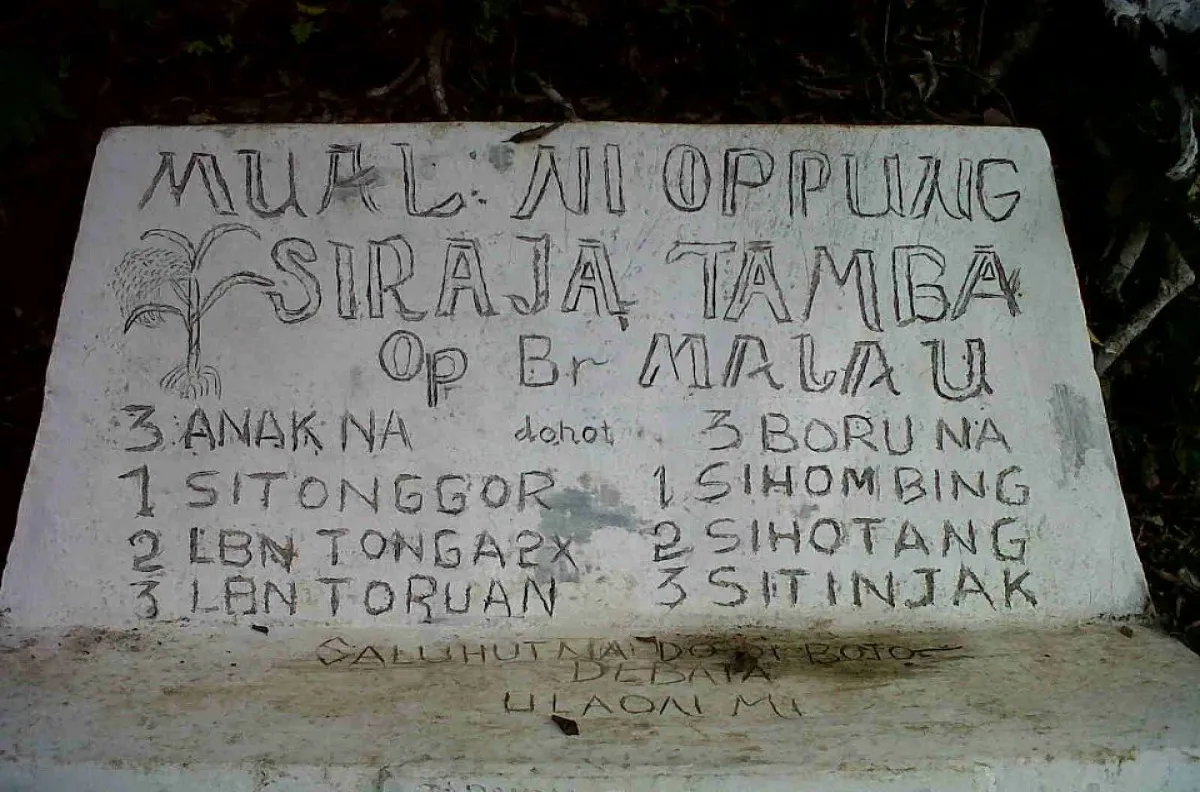 MUAL: NI OPPUNG
SIRAJA TAMBA
Op Br MALAU
3 ANAK NA dohot 3 BORU NA
1 SITONGGOR 1 SIHOMBING
2 LBN TONGA2X 2 SIHOTANG
3 LBN TORUAN 3 SITINJAK
SALUHUTNA DO BOTO
DEBATA
ULAON MI